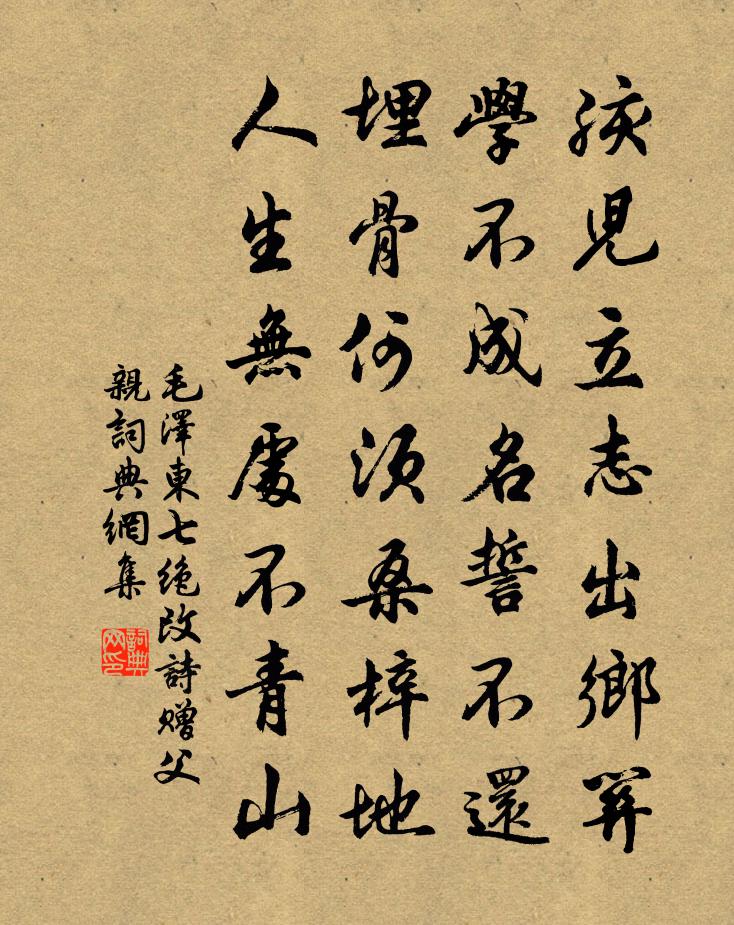 孩兒立志出鄉關
學不成名誓不還
埋骨何須桑梓地
人生無處不青山
毛澤東七絕改詩贈父
親詞典網集
詞典網印